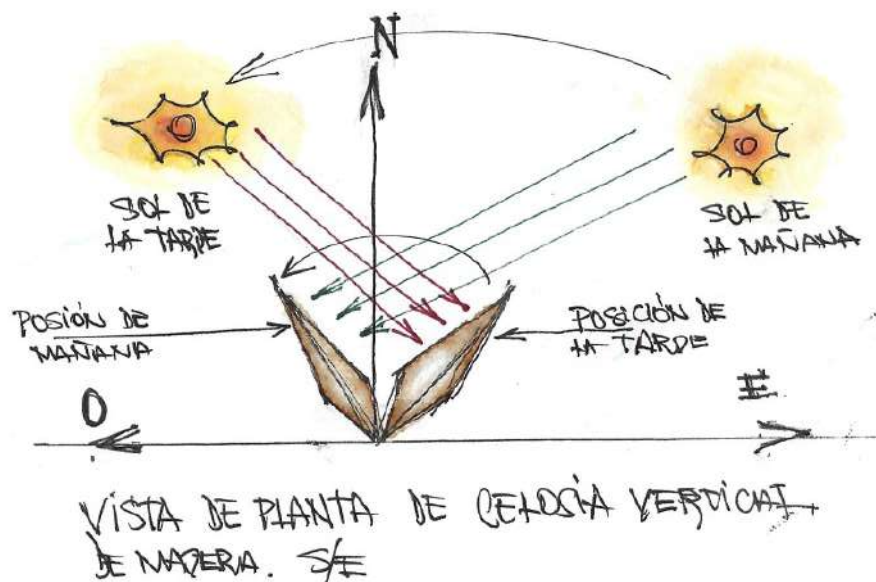 N
SOL DE
LA TARDE
SOL DE
LA MAÑANA
POSIÓN DE
MAÑANA
POSICIÓN DE
LA TARDE
O
E
VISTA DE PLANTA DE CELOSÍA VERTICAL
DE MADERA. S/E